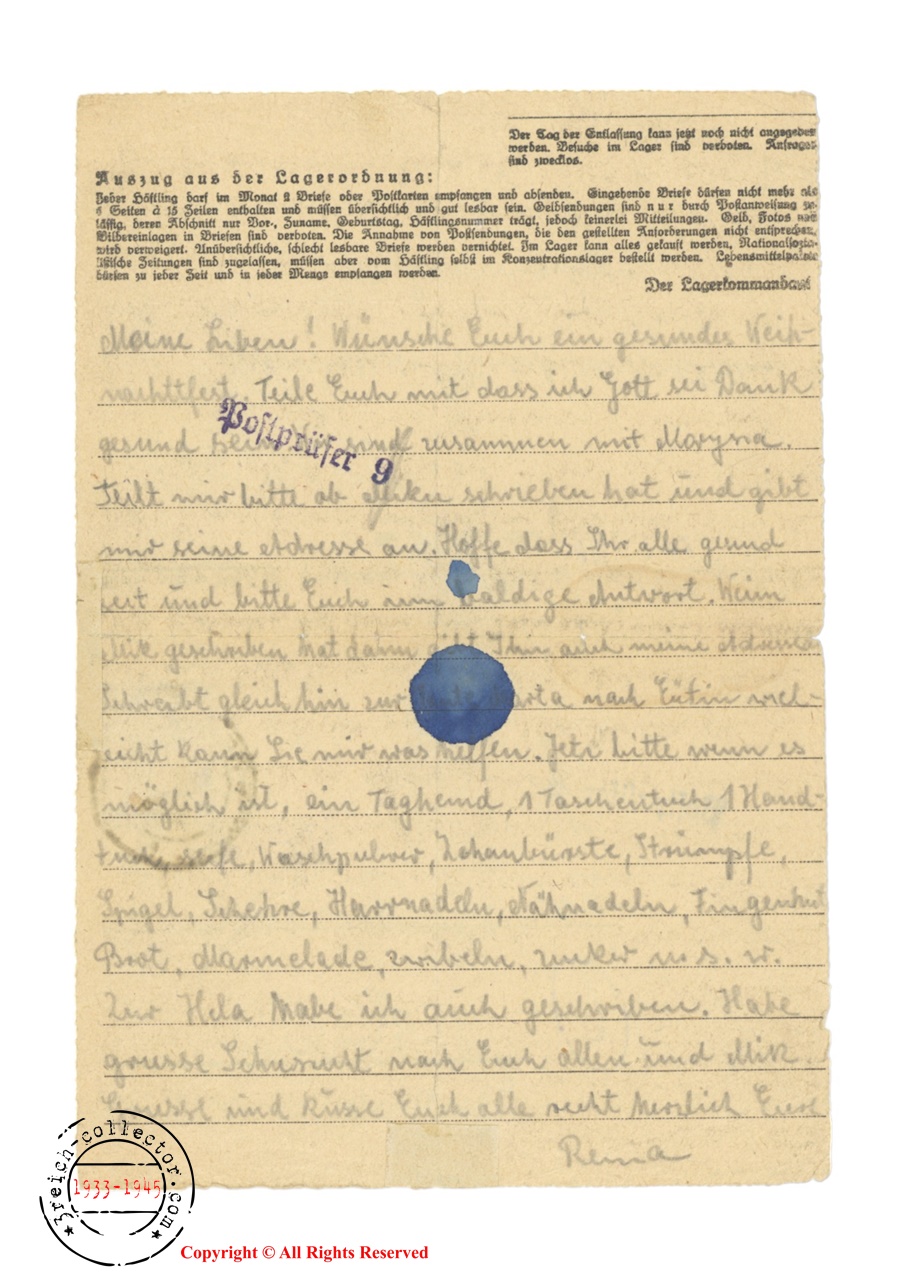 Der Tag der Entlassung kann jetzt noch nicht angegeben
werden. Besuche im Lager sind verboten. Anfragen
sind zwecklos.
Auszug aus der Lagerordnung:
Jeder Häftling darf im Monat 2 Briefe oder Postkarten empfangen und absenden. Eingehende Briefe dürfen nicht mehr als
6 Seiten à 15 Zeilen enthalten und müssen übersichtlich und gut lesbar sein. Geldsendungen sind nur durch Postanweisung zu-
lässig, deren Abschnitt nur Vor-, Zuname, Geburtstag, Häftlingsnummer trägt, jedoch keinerlei Mitteilungen. Geld, Fotos und
Bildereinlagen in Briefen sind verboten. Die Annahme von Postsendungen, die den gestellten Anforderungen nicht entsprechen,
wird verweigert. Unübersichtliche, schlecht lesbare Briefe werden vernichtet. Im Lager kann alles gekauft werden, Nationalsozia-
listische Zeitungen sind zugelassen, müssen aber vom Häftling selbst im Konzentrationslager bestellt werden. Lebensmittelpakete
dürfen zu jeder Zeit und in jeder Menge empfangen werden.
Der Lagerkommandant
Meine Liben! Wünsche Euch ein gesundes Weih-
nachttfest. Teile Euch mit dass ich Gott sei Dank
gesund sind zusammen mit Marysia.
Postprüfer 9
Teilt mir bitte ob schrieben hat und gibt
mir seine Adresse an. Hoffe dass Ihr alle gesund
seit und bitte Euch um baldige Antwort. Wenn
Mik geschrieben hat dann gibt Ihm auch meine Adresse
Schreibt gleich hin zur nach Eutin viel-
leicht kann Sie mir was helfen. Jetz bitte wenn es
möglich ist, ein Taghemd, 1 Taschentuch 1 Hand-
tuch, seife, Waschpulver, Zahanbürste, Strümpfe,
Spigel, Schehre, Harrnadeln, Nähnadeln, Fingerhut
Brot, Marmelade, zwibeln, zuker u. s. w.
Zur Hela habe ich auch geschriben. Habe
grosse Sehnsucht nach Euch allen und Mik.
Grüsse und Küsse Euch alle recht herzlich Eure
Renia
3reich-collector.com
1933-1945
Copyright © All Rights Reserved